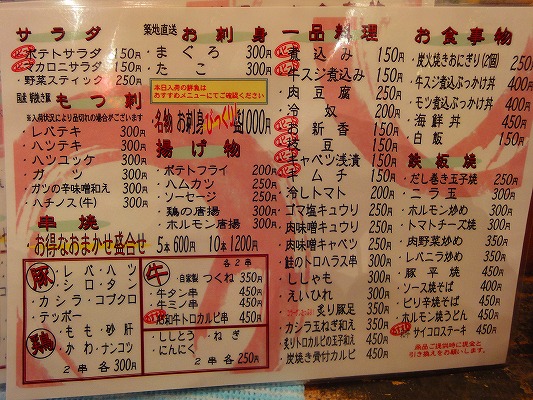 サラダ
ポテトサラダ 150円
マカロニサラダ 150円
・野菜スティック 250円
国産 朝挽き豚 もつ刺
※入荷状況により品切れの場合がございます
・レバテキ 300円
・ハツテキ 300円
・ハツユッケ 300円
・ガツ 300円
・ガツの辛味噌和え 300円
・ハチノス(牛) 300円
築地直送 お刺身
・まぐろ 300円
・たこ 300円
本日入荷の鮮魚は
おすすめメニューにてご確認ください
名物 お刺身びっくり盛1000円
揚げ物
・ポテトフライ 200円
・ハムカツ 200円
・ソーセージ 250円
・鶏の唐揚 300円
・ホルモン唐揚 300円
串焼
・お得なおまかせ盛合せ 5本600円 10本1200円
豚
・レバ・ハツ
・シロ・タン
・カシラ・コブクロ
・テッポー
鶏
・もも・砂肝
・かわ・ナンコツ
2串各300円
牛 各2串
・自家製つくね 350円
・牛タン串 450円
・牛ミノ串 450円
和牛トロカルビ串 450円
・ししとう・ねぎ
・にんにく
2串各250円
一品料理
煮込み 150円
牛スジ煮込み 350円
・肉豆腐 350円
・冷奴 200円
お新香 150円
枝豆 150円
キャベツ浅漬 150円
キムチ 150円
・冷しトマト 250円
・ゴマ塩キュウリ 200円
・肉味噌キュウリ 250円
・肉味噌キャベツ 250円
・鮭のトロハラス串 350円
・ししゃも 350円
・えいひれ 300円
・炙り豚足 350円
・カシラ玉ねぎ和え 300円
・炙りトロカルビの玉子和え 450円
・炭焼き骨付カルビ 450円
お食事物
・炭火焼きおにぎり(2個) 250円
・牛スジ煮込ぶっかけ丼 400円
・モツ煮込ぶっかけ丼 400円
・海鮮丼 450円
・白飯 150円
鉄板焼
・だし巻き玉子焼 250円
・ニラ玉 300円
・ホルモン炒め 300円
・トマトチーズ焼 300円
・肉野菜炒め 350円
・レバニラ炒め 350円
・豚平焼 350円
・ソース焼そば 400円
・ピリ辛焼そば 400円
・ホルモン焼うどん 450円
サイコロステーキ 450円
※商品ご提供時に現金と
引き換えをお願いします。